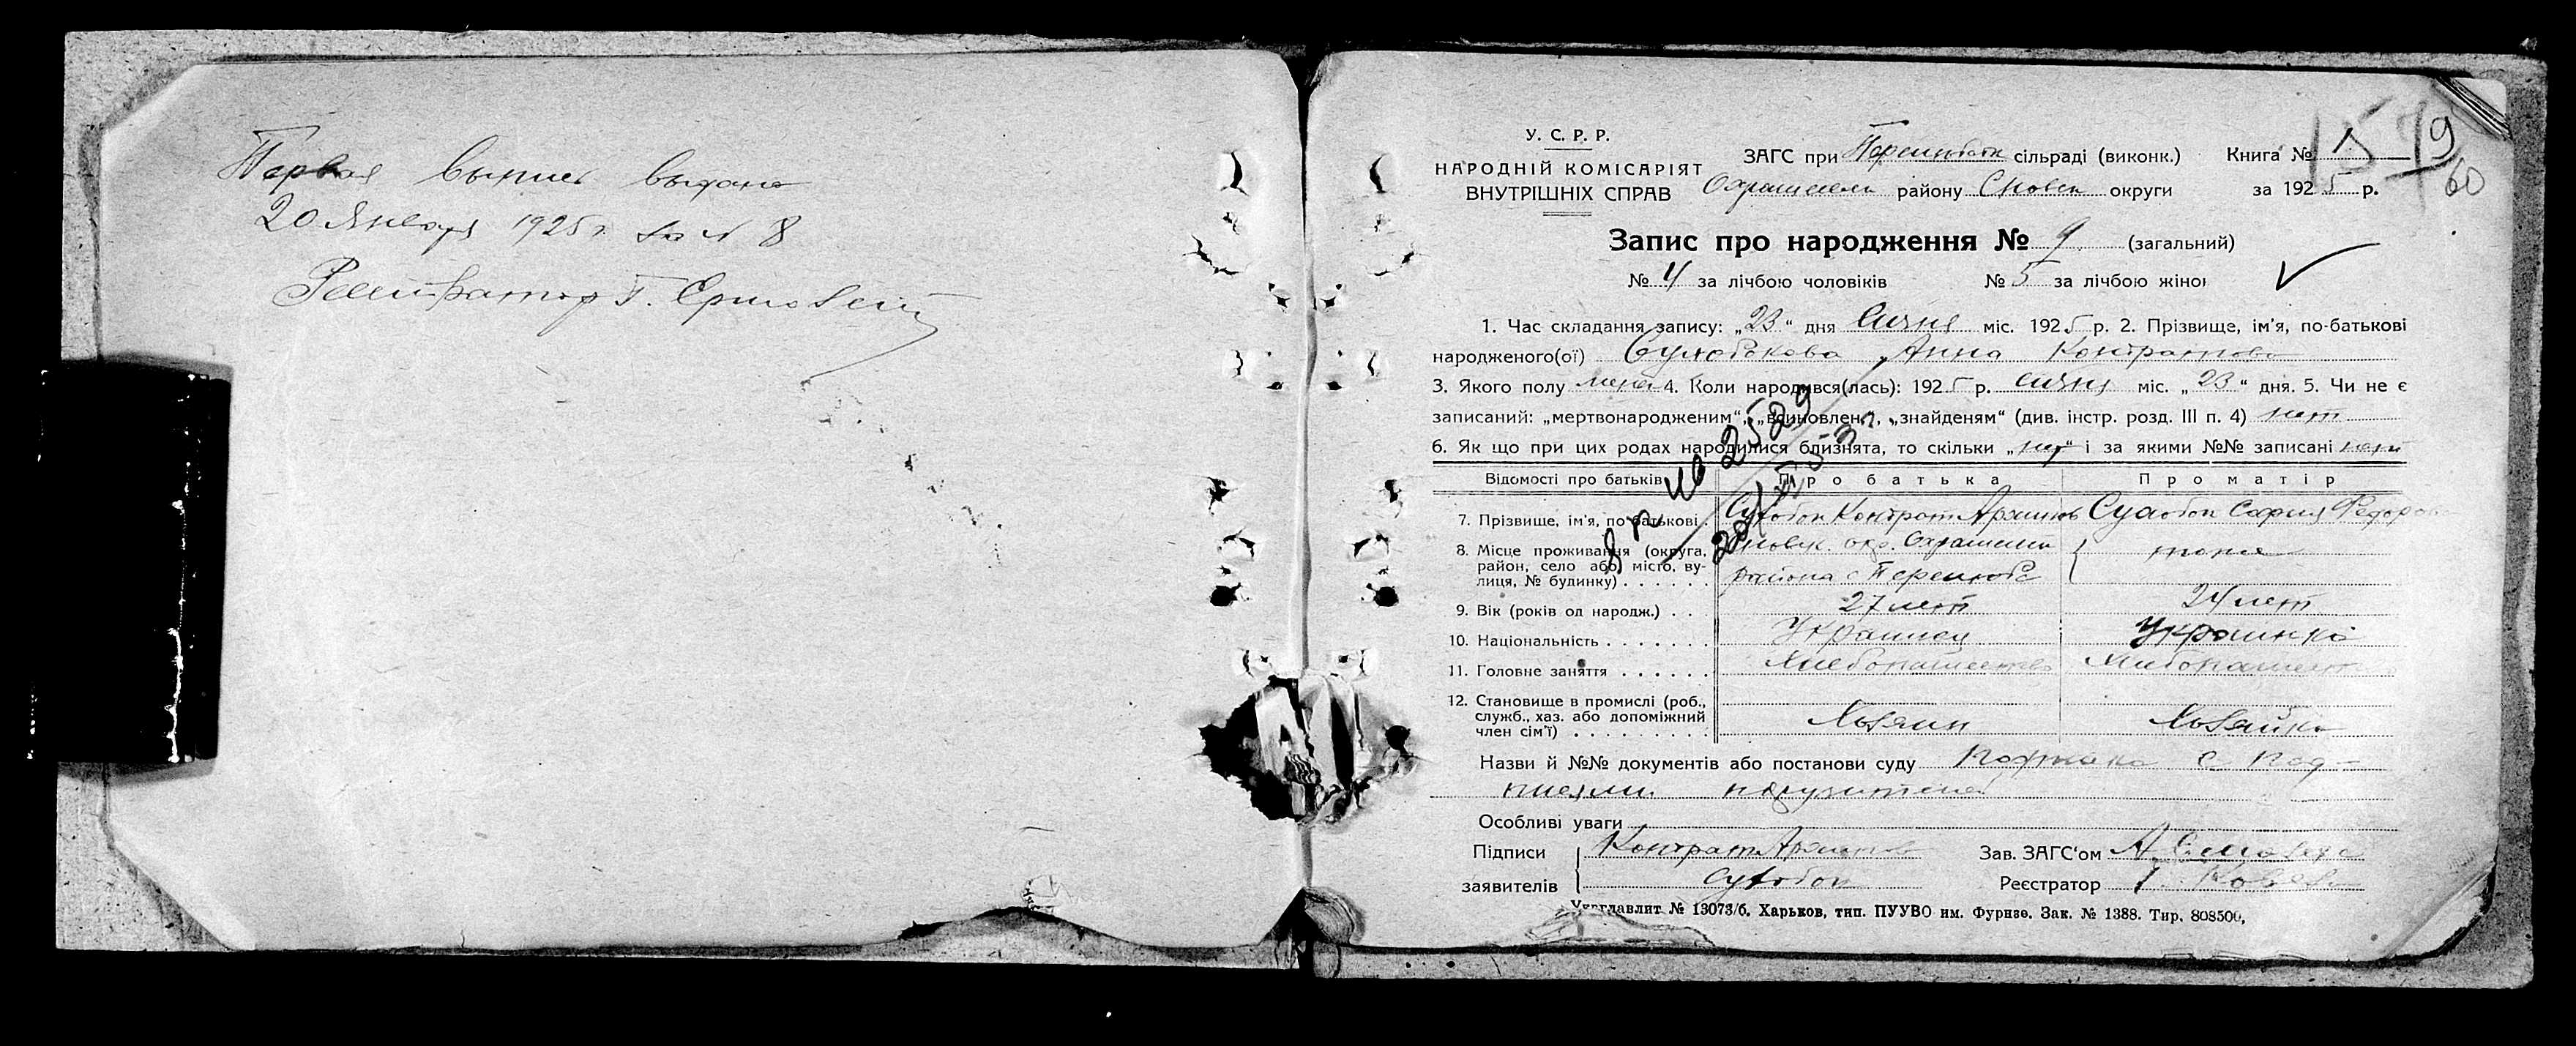 Первая выпись выдана
20 Января 1925 г. за № 8
Регистратор Г.
У. С. Р. Р.
НАРОДНІЙ КОМІСАРІЯТ
ВНУТРІШНІХ СПРАВ
ЗАГС при сільраді (виконк.)
району Сновск округи
Книга № 1
за 1925 р.
19
60
Запис про народження № 9 (загальний)
№ 4 за лічбою чоловіків № 5 за лічбою жіноч
1. Час складання запису: „23“ дня Січня міс. 1925 р. 2. Прізвище, ім’я, по-батькові
народженого(ої) Сухобокова Анна Контратова
3. Якого полу 4. Коли народився(лась): 1925 р. січня міс. „23“ дня. 5. Чи не є
записаний: „мертвонародженим“, „всиновлен“, „знайденям“ (див. інстр. розд. III п. 4) нет
6. Як що при цих родах народилися близнята, то скільки „нет“ і за якими №№ записані нет
Відомості про батьків Про батька Про матір
7. Прізвище, ім’я, по-батькові Сухобок Контрат Архипов Сухобок София Федоров
8. Місце проживання (округа,
район, село або місто, ву-
лиця, № будинку)
Сновск. окр.
района с
9. Вік (років од народж.) 27 лет 24 лет
10. Національність Украинец Украинка
11. Головне заняття Хлебопашество Хлебопашест
12. Становище в промислі (роб.,
служб., хаз. або допоміжний
член сім’ї) Хозяин Хозяйка
Назви й №№ документів або постанови суду
Особливі уваги
Підписи Контрат Архипов Зав. ЗАГС’ом А.
заявителів Сухобок Реєстратор Г.
Укрглавлит № 13073/б. Харьков, тип. ПУУВО им. Фрунзе. Зак. № 1388. Тир. 808500,